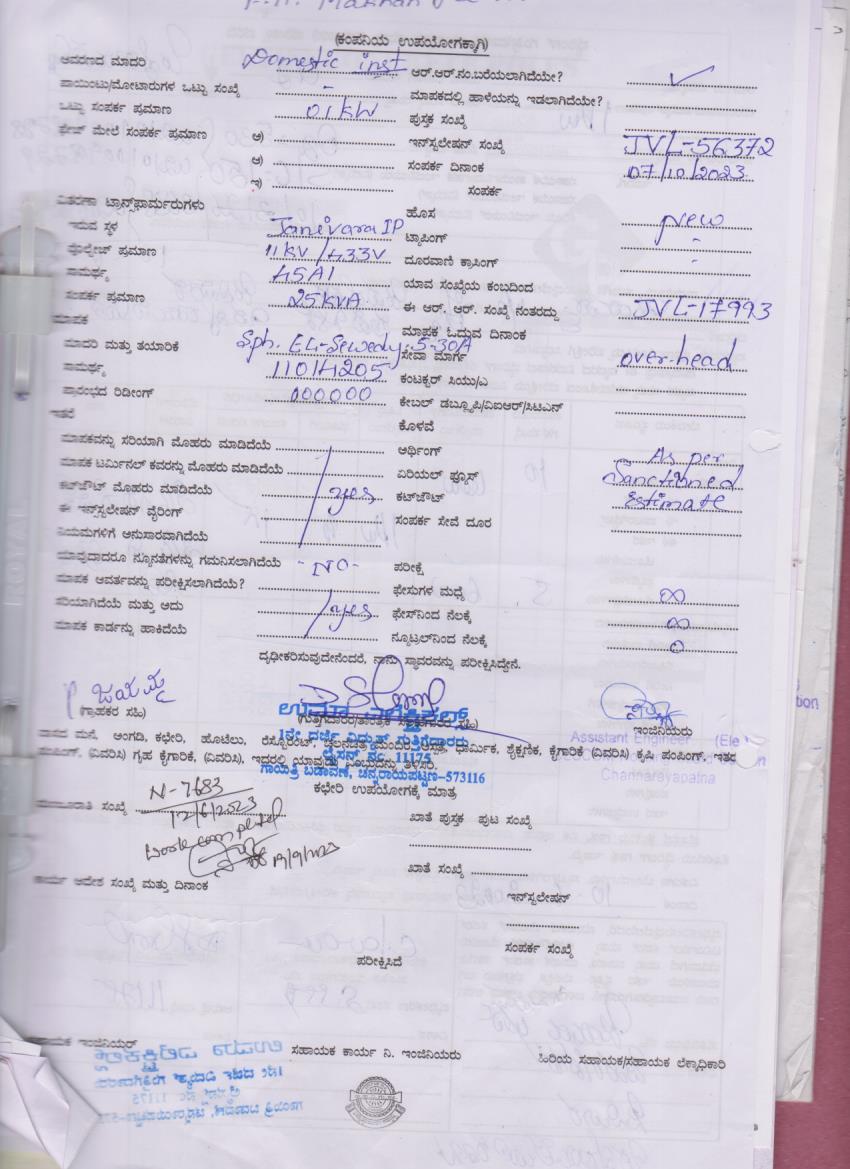 (ಕಂಪನಿಯ ಉಪಯೋಗಕ್ಕಾಗಿ)
ಆವರಣದ ಮಾದರಿ Domestic inst ಆರ್.ಆರ್.ನಂ.ಬರೆಯಲಾಗಿದೆಯೇ? ✓
ಪಾಯಿಂಟು/ಮೋಟಾರುಗಳ ಒಟ್ಟು ಸಂಖ್ಯೆ - ಮಾಪಕದಲ್ಲಿ ಹಾಳೆಯನ್ನು ಇಡಲಾಗಿದೆಯೇ?
ಒಟ್ಟು ಸಂಪರ್ಕ ಪ್ರಮಾಣ 01 kW ಪುಸ್ತಕ ಸಂಖ್ಯೆ
ಫೇಜ್ ಮೇಲೆ ಸಂಪರ್ಕ ಪ್ರಮಾಣ ಅ) ಇನ್‌ಸ್ಟಲೇಷನ್ ಸಂಖ್ಯೆ JVL-56372
ಆ) ಸಂಪರ್ಕ ದಿನಾಂಕ 07/10/2023
ಇ) ಸಂಪರ್ಕ
ವಿತರಣಾ ಟ್ರಾನ್ಸ್‌ಫಾರ್ಮರುಗಳು ಹೊಸ new
ಇರುವ ಸ್ಥಳ Janivara IP ಟ್ಯಾಪಿಂಗ್ -
ವೋಲ್ಟೇಜ್ ಪ್ರಮಾಣ 11kV/433V ದೂರವಾಣಿ ಕ್ರಾಸಿಂಗ್ -
ಸಾಮರ್ಥ್ಯ ಯಾವ ಸಂಖ್ಯೆಯ ಕಂಬದಿಂದ
ಸಂಪರ್ಕ ಪ್ರಮಾಣ 25kVA ಈ ಆರ್. ಆರ್. ಸಂಖ್ಯೆ ನಂತರದ್ದು JVL-17993
ಮಾಪಕ ಮಾಪಕ ಓದುವ ದಿನಾಂಕ
ಮಾದರಿ ಮತ್ತು ತಯಾರಿಕೆ Sph. EL-Sewedy. 5-30A ಸೇವಾ ಮಾರ್ಗ over-head
ಸಾಮರ್ಥ್ಯ 11014205 ಕಂಟಕ್ಟರ್ ಸಿಯು/ಎ
ಪ್ರಾರಂಭದ ರಿಡೀಂಗ್ 000000 ಕೇಬಲ್ ಡಬ್ಲ್ಯೂಪಿ/ವಿಐಆರ್/ಸಿಟಿಎನ್
ಇತರೆ ಕೊಳವೆ
ಮಾಪಕವನ್ನು ಸರಿಯಾಗಿ ಮೊಹರು ಮಾಡಿದೆಯೆ ಅರ್ಥಿಂಗ್ As per
ಮಾಪಕ ಟರ್ಮಿನಲ್ ಕವರನ್ನು ಮೊಹರು ಮಾಡಿದೆಯೆ ಏರಿಯಲ್ ಫ್ಯೂಸ್ Sanctioned
ಕಟ್‌ಔಟ್ ಮೊಹರು ಮಾಡಿದೆಯೆ yes ಕಟ್‌ಔಟ್ Estimate
ಈ ಇನ್‌ಸ್ಟಲೇಷನ್ ವೈರಿಂಗ್ ಸಂಪರ್ಕ ಸೇವೆ ದೂರ
ನಿಯಮಗಳಿಗೆ ಅನುಸಾರವಾಗಿದೆಯೆ
ಯಾವುದಾದರೂ ನ್ಯೂನತೆಗಳನ್ನು ಗಮನಿಸಲಾಗಿದೆಯೆ -NO- ಪರೀಕ್ಷೆ
ಮಾಪಕ ಆವರ್ತವನ್ನು ಪರೀಕ್ಷಿಸಲಾಗಿದೆಯೆ? ಫೇಸುಗಳ ಮಧ್ಯೆ ∞
ಸರಿಯಾಗಿದೆಯೆ ಮತ್ತು ಅದು yes ಫೇಸ್‌ನಿಂದ ನೆಲಕ್ಕೆ ∞
ಮಾಪಕ ಕಾರ್ಡನ್ನು ಹಾಕಿದೆಯೆ ನ್ಯೂಟ್ರಲ್‌ನಿಂದ ನೆಲಕ್ಕೆ 0
ದೃಢೀಕರಿಸುವುದೇನೆಂದರೆ, ನಾನು ಸ್ಥಾವರವನ್ನು ಪರೀಕ್ಷಿಸಿದ್ದೇನೆ.
ಜಯಮ್ಮ
(ಗ್ರಾಹಕರ ಸಹಿ) ಇಂಜಿನಿಯರು
1ನೇ ದರ್ಜೆ ವಿದ್ಯುತ್ ಗುತ್ತಿಗೆದಾರರು Assistant Engineer (Ele
ಲೈಸೆನ್ಸ್ ನಂ. 11175
ಗಾಯತ್ರಿ ಬಡಾವಣೆ, ಚನ್ನರಾಯಪಟ್ಟಣ-573116 Channarayapatna
ಕಛೇರಿ ಉಪಯೋಗಕ್ಕೆ ಮಾತ್ರ
N-7683
ಮಂಜೂರಾತಿ ಸಂಖ್ಯೆ 12/6/2023 ಖಾತೆ ಪುಸ್ತಕ ಪುಟ ಸಂಖ್ಯೆ
Work completed
19/9/2023 ಖಾತೆ ಸಂಖ್ಯೆ
ಕಾರ್ಯ ಆದೇಶ ಸಂಖ್ಯೆ ಮತ್ತು ದಿನಾಂಕ ಇನ್‌ಸ್ಟಲೇಷನ್
ಸಂಪರ್ಕ ಸಂಖ್ಯೆ
ಪರೀಕ್ಷಿಸಿದೆ
ಸಹಾಯಕ ಇಂಜಿನಿಯರ್ ಸಹಾಯಕ ಕಾರ್ಯ ನಿ. ಇಂಜಿನಿಯರು ಹಿರಿಯ ಸಹಾಯಕ/ಸಹಾಯಕ ಲೆಕ್ಕಾಧಿಕಾರಿ